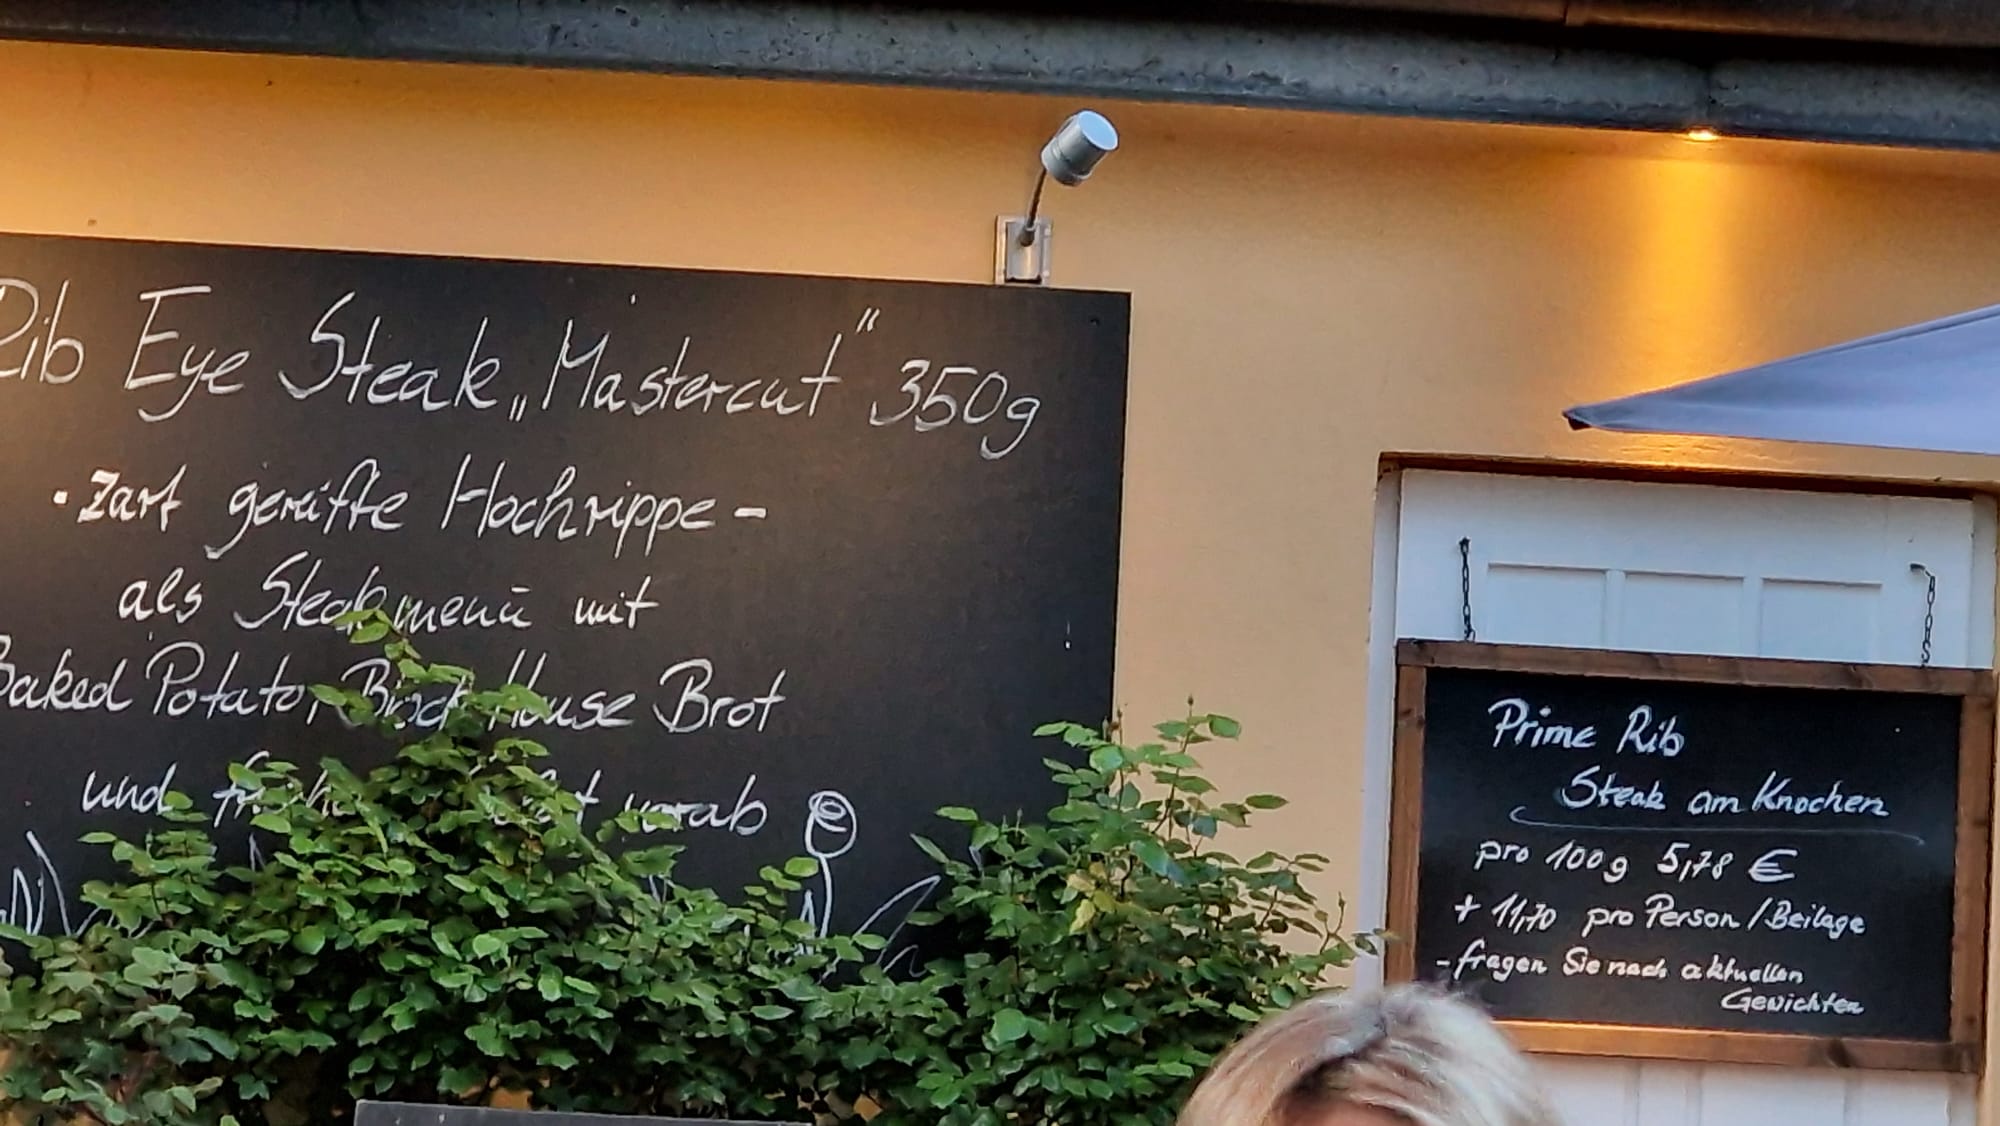 Rib Eye Steak „Mastercut“ 350g
- zart gereifte Hochrippe -
als Steakmenü mit
Baked Potato, Block House Brot
und vorab
Prime Rib
Steak am Knochen
pro 100g 5,78 €
+ 11,70 pro Person / Beilage
- fragen Sie nach aktuellen
Gewichten